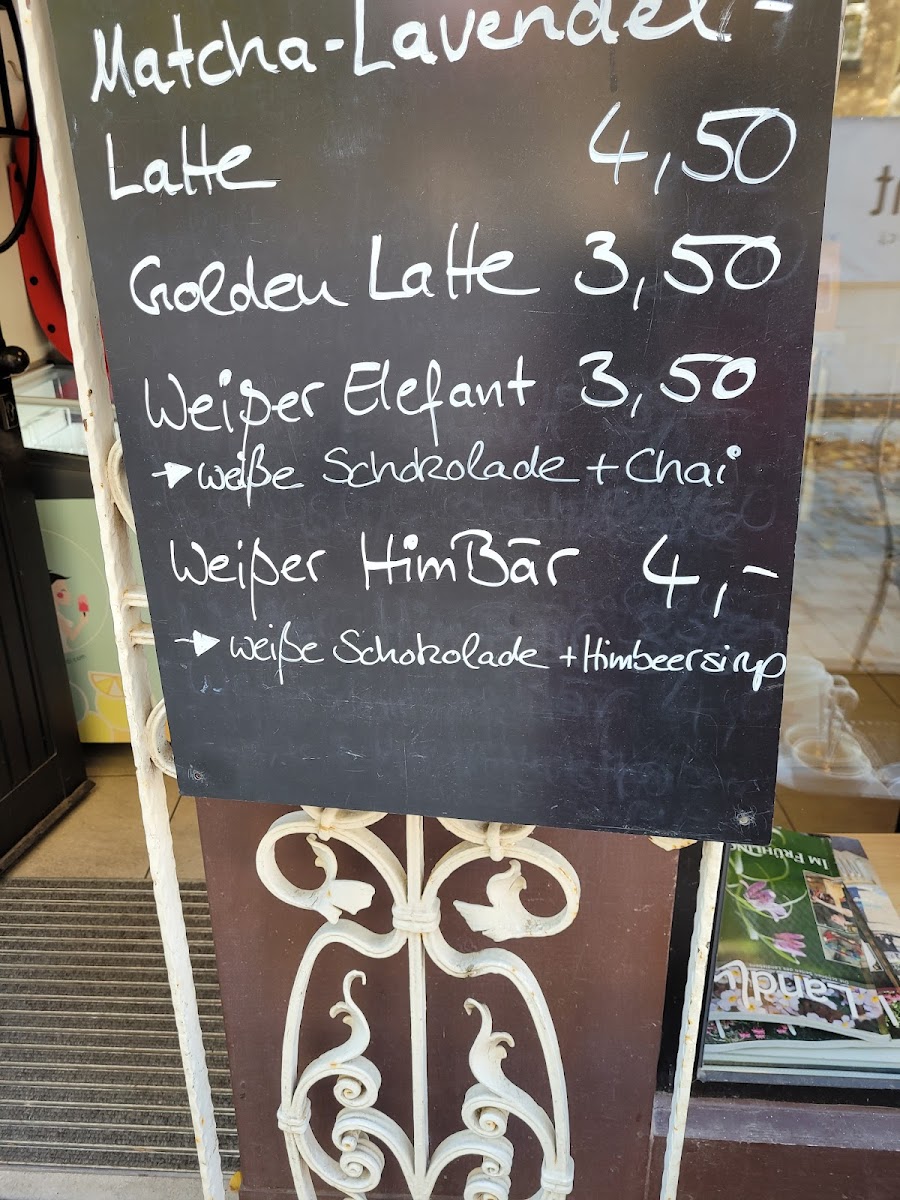 Matcha-Lavendel-
Latte 4,50
Golden Latte 3,50
Weißer Elefant 3,50
→ weiße Schokolade + Chai
Weißer HimBär 4,-
→ weiße Schokolade + Himbeersirup
IM FRÜHLING